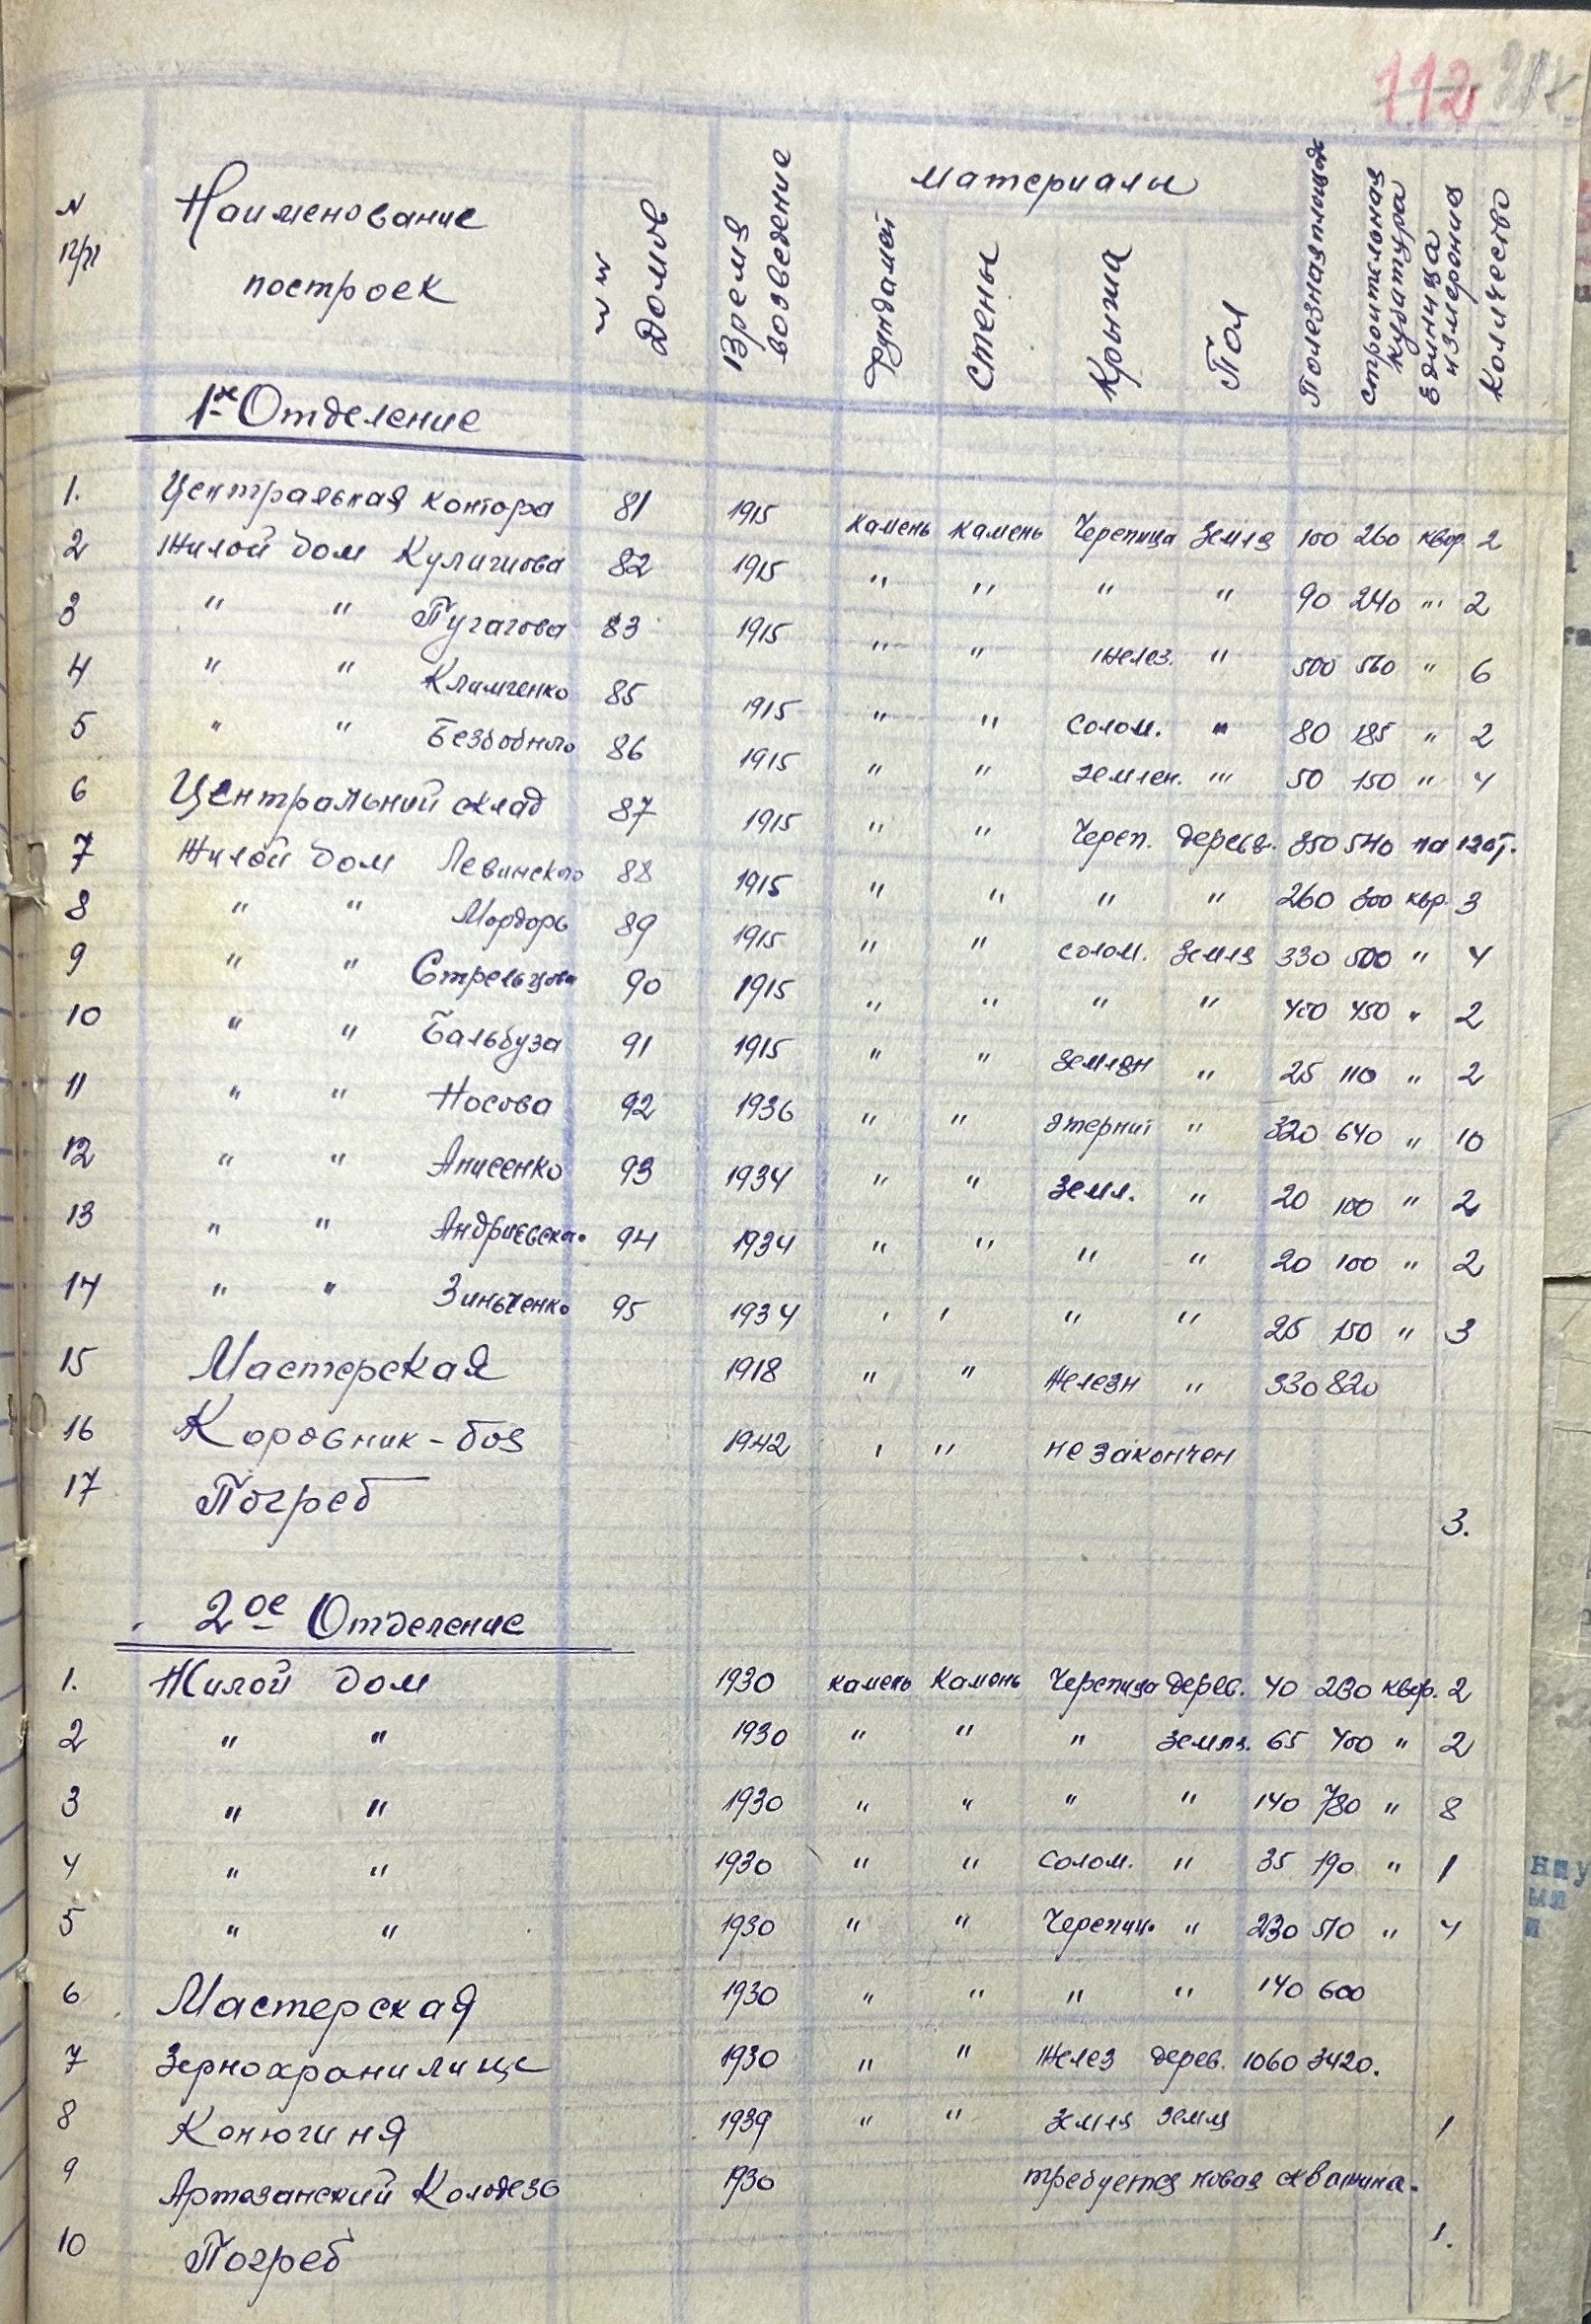 112
N п/п Наименование построек N N Домов Время возведение материалы Фундамен Стены Крыша Пол Полезная площадь Строительная Кубатура Единица измерения Количество
1ое Отделение
1. Центральная контора 81 1915 камень камень Черепица Земля 100 260 квар. 2
2 Жилой дом 82 1915 " " " " 90 240 " 2
3 " " Пугачова 83 1915 " " Желез. " 500 560 " 6
4 " " Климченко 85 1915 " " солом. " 80 185 " 2
5 " " 86 1915 " " землен. " 50 150 " 4
6 Центральний склад 87 1915 " " Череп. дерев. 350 540 на 120 т.
7 Жилой дом Левинского 88 1915 " " " " 260 300 квр. 3
8 " " 89 1915 " " солом. Земля 330 500 " 4
9 " " Стрельцова 90 1915 " " " " 400 450 " 2
10 " " Бальбуза 91 1915 " " землян " 25 110 " 2
11 " " Носова 92 1936 " " этернит " 320 640 " 10
12 " " Анисенко 93 1934 " " земл. " 20 100 " 2
13 " " Андриевско. 94 1934 " " " " 20 100 " 2
14 " " Зинченко 95 1934 " " " " 25 150 " 3
15 Мастерская 1918 " " Железн " 330 820
16 Коровник - 1942 " " не закончен
17 Погреб 3.
2ое Отделение
1. Жилой дом 1930 камень Камень Черепица дерев. 40 230 квар. 2
2 " " 1930 " " " земля. 65 400 " 2
3 " " 1930 " " " " 140 780 " 8
4 " " 1930 " " Солом. " 35 190 " 1
5 " " 1930 " " Черепиц. " 230 510 " 4
6 Мастерская 1930 " " " " 140 600
7 Зернохранилище 1930 " " Желез дерев. 1060 3420.
8 Конюгиня 1939 " " земля земля 1
9 Артезанский Колодезь 1930 требуется новая скважина.
10 Погреб 1.